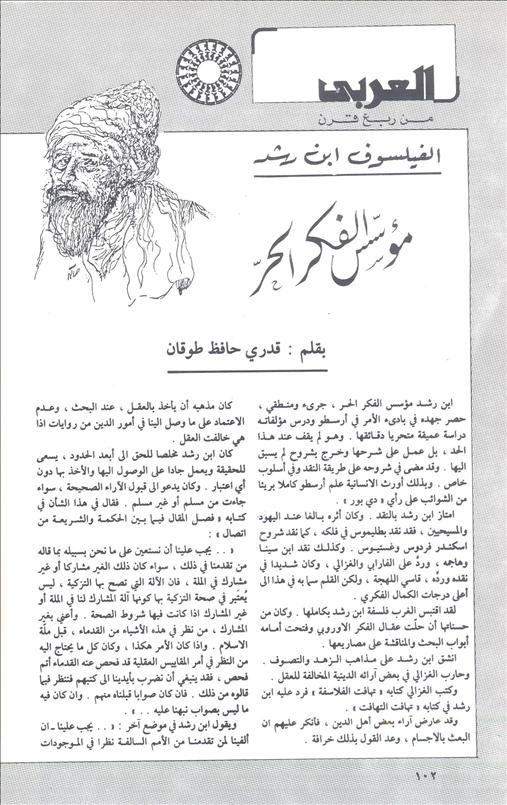 العربي
من ربع قرن
الفيلسوف ابن رشد
مؤسس الفكر الحر
بقلم : قدري حافظ طوقان
ابن رشد مؤسس الفكر الحر ، جرىء ومنطقي ،
حصر جهده في بادىء الأمر في أرسطو ودرس مؤلفاته
دراسة عميقة متحريا دقائقها . وهو لم يقف عند هذا
الحد ، بل عمل على شرحها وخرج بشروح لم يسبق
اليها . وقد مضى في شروحه على طريقة النقد وفي أسلوب
خاص . وبذلك أورث الانسانية علم أرسطو كاملا بريئا
من الشوائب على رأي « دي بور » .
امتاز ابن رشد بالنقد . وكان أثره بالغا عند اليهود
والمسيحيين ، فقد نقد بطليموس في فلكه ، كما نقد شروح
اسكندر فردوس وغستيوس . وكذلك نقد ابن سينا
وهاجمه ، وردَّ على الفارابي والغزالي ، وكان شديدا في
نقده وردِّه ، قاسي اللهجة ، ولكن القلم سما به في هذا الى
أعلى درجات الكمال الفكري .
لقد اقتبس الغرب فلسفة ابن رشد بكاملها . وكان من
حسناتها أن حلَّت عقال الفكر الاوروبي وفتحت أمامه
أبواب البحث والمناقشة على مصاريعها .
انشق ابن رشد على مذاهب الزهد والتصوف .
وحارب الغزالي في بعض آرائه الدينية المخالفة للعقل .
وكتب الغزالي كتابه « تهافت الفلاسفة » فرد عليه ابن
رشد في كتابه « تهافت التهافت » .
وقد عارض آراء بعض أهل الدين ، فأنكر عليهم ان
البعث بالاجسام ، وعد القول بذلك خرافة .
كان مذهبه أن يأخذ بالعقل ، عند البحث ، وعدم
الاعتماد على ما وصل الينا في أمور الدين من روايات اذا
هي خالفت العقل .
كان ابن رشد مخلصا للحق الى أبعد الحدود ، يسعى
للحقيقة ويعمل جادا على الوصول اليها والأخذ بها دون
أي اعتبار . وكان يدعو الى قبول الآراء الصحيحة ، سواء
جاءت من مسلم أو غير مسلم . فقال في هذا الشأن في
كتابه « فصل المقال فيما بين الحكمة والشريعة من
اتصال » :
« . . يجب علينا أن نستعين على ما نحن بسبيله بما قاله
من تقدمنا في ذلك ، سواء كان ذلك الغير مشاركا أو غير
مشارك في الملة ، فان الآلة التي تصح بها التزكية ، ليس
يُعتَبر في صحة التزكية بها كونها آلة المشارك لنا في الملة أو
غير المشارك اذا كانت فيها شروط الصحة . وأعني بغير
المشارك ، من نظر في هذه الأشياء من القدماء ، قبل ملّة
الاسلام . واذا كان الأمر هكذا ، وكان كل ما يحتاج اليه
من النظر في أمر المقاييس العقلية قد فحص عنه القدماء أتم
فحص ، فقد ينبغي أن نضرب بأيدينا الى كتبهم فننظر فيما
قالوه من ذلك . فان كان صوابا قبلناه منهم . وان كان فيه
ما ليس بصواب نبهنا عليه . . » .
ويقول ابن رشد في موضع آخر : « . . يجب علينا ــ ان
ألفينا لمن تقدمنا من الأمم السالفة نظرا في الموجودات
١٠٢